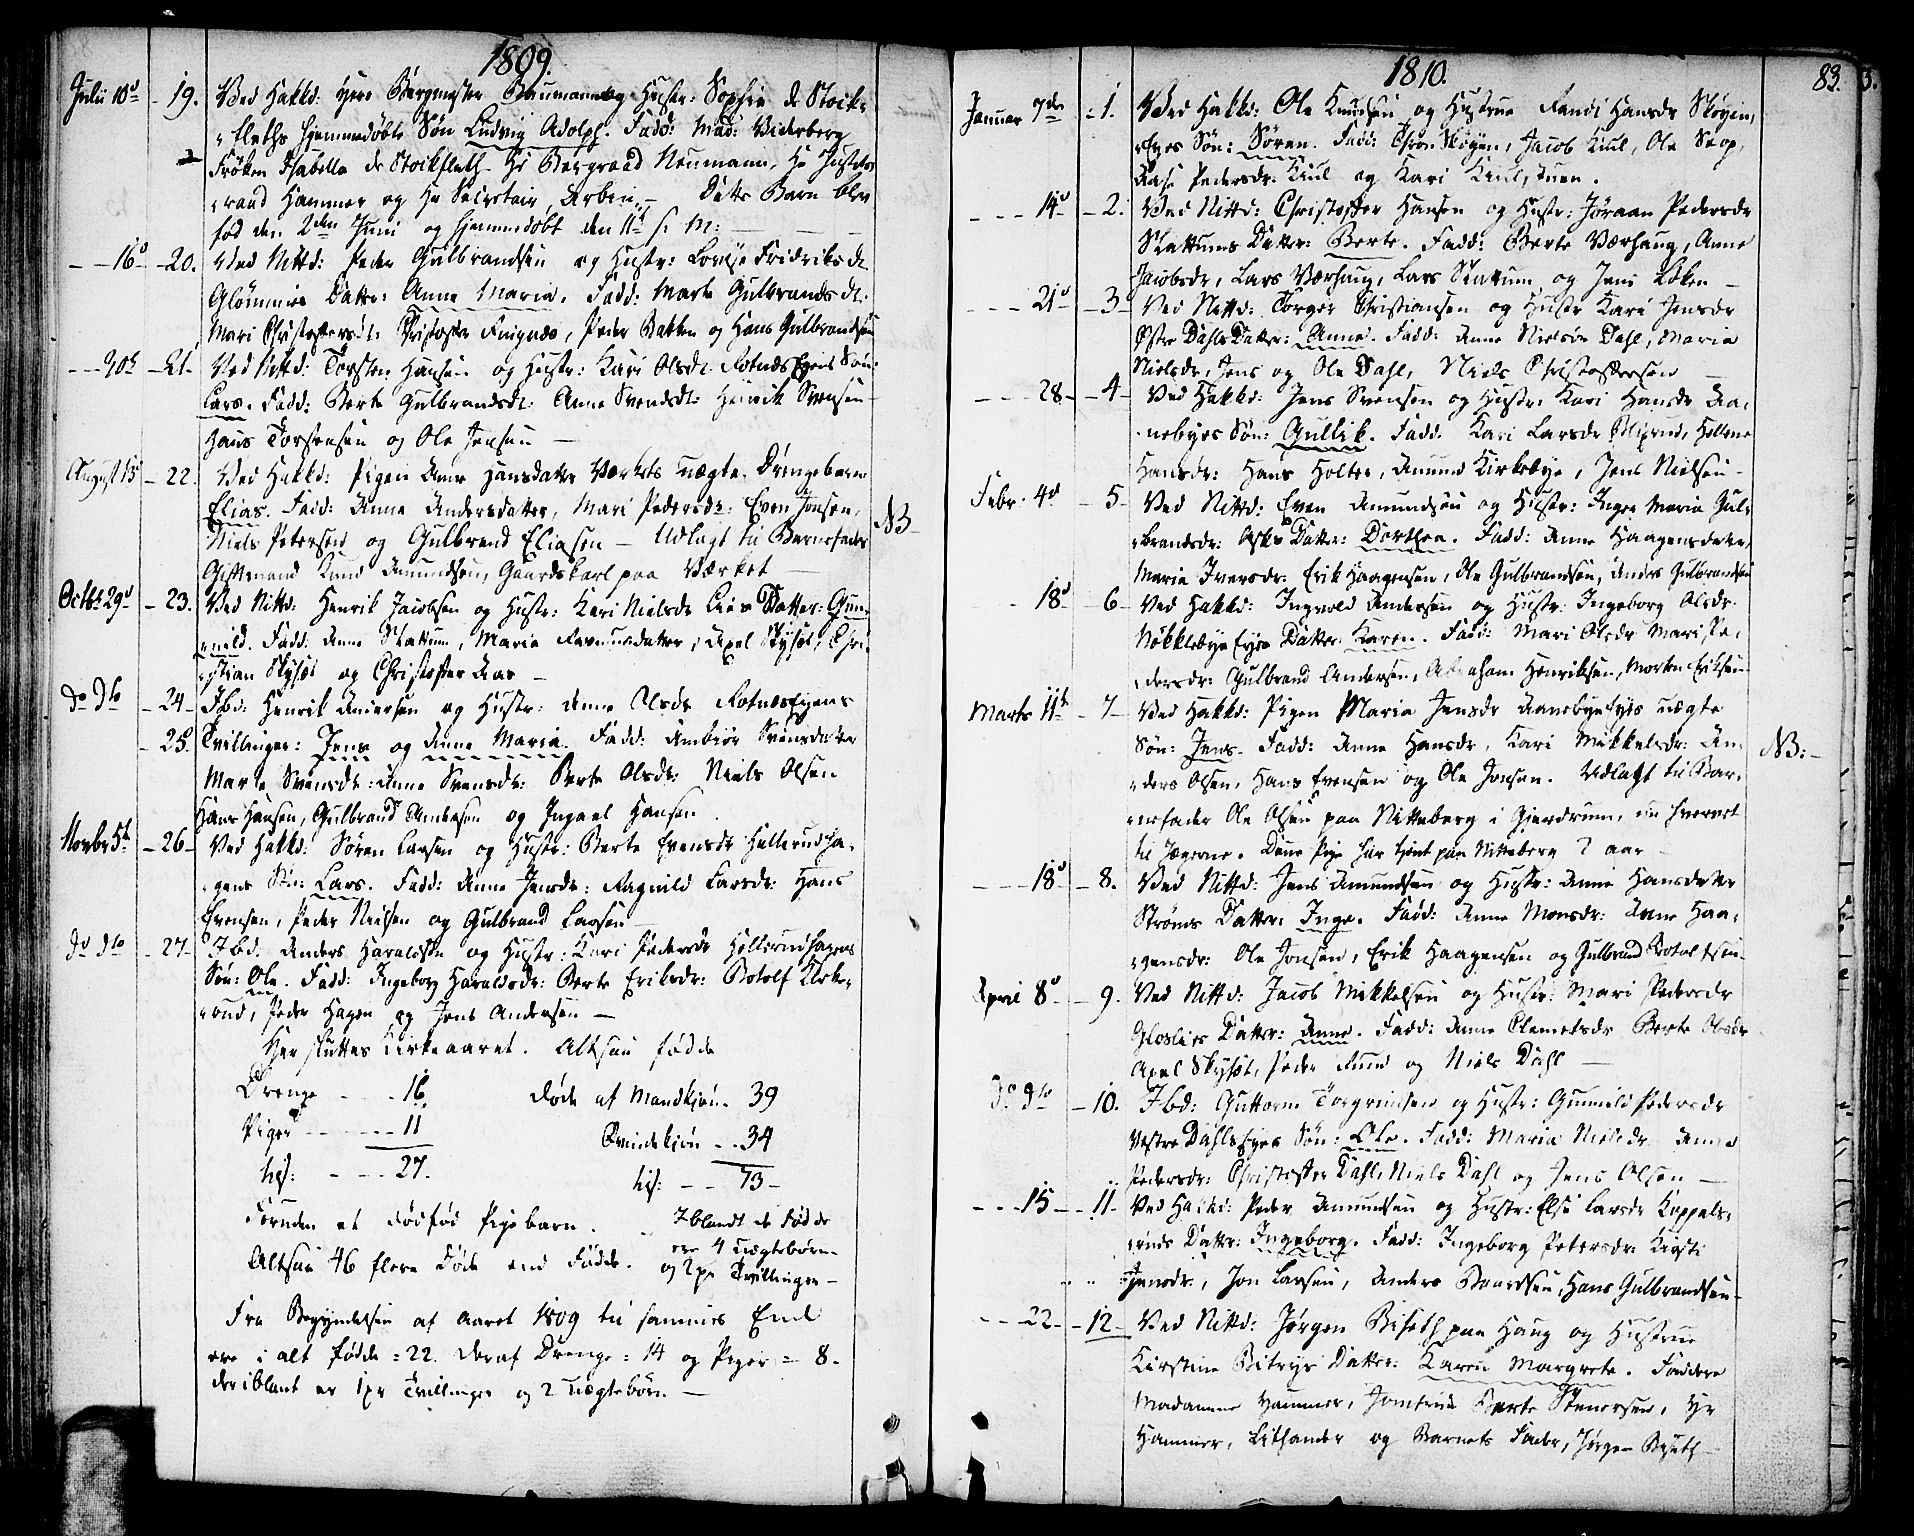 1809.
Julii 10d - 19. Ved Hakkd: Herr Bergmester Baumann og Hustr: Sophie de Stock-
fleths hjemmedøbte Søn Ludvig Adolph. Fadd: Mad: Viderberg
Frøken Isabella de Stockfleth. Hr Bergraad Neumann, Hr Justits-
raad Hammer og Hr Secretair Arbin. - Dette Barn blev
fød den 2den Juni og hjemmedøbt den 11t s. M:
- - 16d - 20. Ved Nittd: Peder Gulbrandsen og Hustr: Lovise Fridriksdt
Datter: Anne Maria. Fadd: Marte Gulbrandsdt:
Mari Christophersdt: Christopher, Peder Bakken og Hans Gulbrandsen
- - 30d - 21. Ved Nittd: Torsten Hansen og Hustr: Kari Olsdt. Rotnæs Eyens Søn:
Lars. Fadd: Berte Gulbrandsdt: Anne Svendsdt: Henrik Svensen
Hans Torstensen og Ole Jensen
August 13 - 22. Ved Hakkd: Pigen Anne Hansdatter Værkets uægte Drengebarn
Elias. Fadd: Anne Andersdatter, Mari Pedersdr: Even Jonsen,
Niels Petersen og Gulbrand Eliasen - Udlagt til Barnefader
NB
Knud Amundsen, Gaardskarl paa Værket
Octbr 29d - 23. Ved Nittd: Henrik Jacobsen og Hustr: Kari Nielsdr Datter: Gun-
nild. Fadd: Anne Slattum, Maria datter, Axel Skyset, Chri-
stian Skyset og Christoffer Aas
do dto - 24 - Ibd: Henrik Andersen og Hustr: Anne Olsdr RotnesEyens
- 25. Tvillinger: Jens og Anne Maria. Fadd: Svensdatter
Marte Svensdt: Anne Svensdr: Berte Olsdr: Niels Olsen
Hans Hansen, Gulbrand Andersen og Ingael Hansen.
Novbr 5t - 26 - Ved Hakkd: Søren Larsen og Hustr: Berte Evensdr Hellerudha-
gens Søn: Lars. Fadd: Anne Jensdr: Ragnild Larsdr: Hans
Evensen, Peder Nielsen og Gulbrand Larsen
do dto - 27 - Ibd: Anders Haraldsen og Hustr: Kari Pedersdr Hellerudhagens
Søn: Ole. Fadd: Ingeborg Haraldsdr: Berte Eriksdr: Botolf Kirke-
rud, Peder Hagen og Jens Andersen
Her sluttes Kirkeaaret. Altsaa fødde
Drenge - - - 16. døde af Mandkjøn - 39
Piger - - - 11 Qvindekjøn - - 34
til: - - - 27. til: - - 73 -
Foruden et dødfød Pigebarn. Iblandt de fødde
Altsaa 46 flere døde end fødde. ere 4 uægtebørn
og 2 pr Tvillinger -
Fra Begyndelsen af Aaret 1809 til sammes Ende
ere i alt fødde = 22. deraf Drenge = 14 og Piger = 8.
der iblant er 1 pr Tvillinger og 2 uægtebørn. -
1810.
83.
3.
Januar 7de - 1. Ved Hakkd: Ole Knudsen og Hustrue Randi Hansdr Skøyen
Eyes Søn: Søren. Fadd: Skøyen, Jacob Kiul, Ole
Aase Pedersdr: Kiul og Kari Kiulstuen.
- - - 14d - 2. Ved Nittd: Christoffer Hansen og Hustr: Jøraan Pedersdr
Slattums Datter: Berte. Fadd: Berte Værhaug, Anne
Jacobsdr, Lars Værhaug, Lars Slattum og Jens Løken
- - - 21d - 3 - Ved Nittd: Torger Christiansen og Hustr Kari Jensdr
Østre Dahls Datter: Anne. Fadd: Anne Dahl, Maria
Nielsdr, Jens og Ole Dahl, Niels Christoffersen
- - - 28 - 4 - Ved Hakkd: Jens Svensen og Hustr: Kari Hansdr Aa-
nebyes Søn: Gullik. Fadd: Kari Larsdr, Hellene
Hansdr: Hans Holter, Amund Kirkebye, Jens Nielsen
Febr. 4d - 5 - Ved Nittd: Even Amundsen og Hustr: Inger Maria Gul-
brandsdr: Datter: Dorthea. Fadd: Anne Haagensdatter,
Maria Iversdr: Erik Haagensen, Ole Gulbrandsen, Anders Gulbrandsen
- 18d - 6 - Ved Hakkd: Ingvold Andersen og Hustr: Ingeborg Olsdr.
Nökkleby Eyes Datter: Karen. Fadd: Mari Olsdr Mari Pe-
dersdr: Gulbrand Andersen, Abraham Henriksen, Morten Eriksen
Marts 11t - 7 - Ved Hakkd: Pigen Maria Jensdr AanebyeEyes uægte
Søn: Jens. Fadd: Anne Hansdr, Kari Mikkelsdr: An-
ders Olsen, Hans Evensen og Ole Jonsen. Udlagt til Bar-
NB: -
nefader Ole Olsen paa Nitteberg i Gjerdrum, nu hvervet
til Jægerne. Denne Pige har tient paa Nitteberg 2 aar
- - - 18d - 8. Ved Nittd: Jens Amundsen og Hustr: Anne Hansdatter
Strøms Datter: Inge. Fadd: Anne Monsdr: Anne Haa-
gensdr: Ole Jonsen, Erik Haagensen og Gulbrand Botolfsen
April 8d - 9. Ved Nittd: Jacob Mikkelsen og Hustr: Mari Pedersdr
Gloslies Datter: Anne. Fadd: Anne Clemetsdr Berte Olsdr
Axel Skyset, Peder Ruud og Niels Dahl
do dto - 10. Ibd: Guttorm Torgrimsen og Hustr: Gunnild Pedersdr
Vestre Dahls Eyes Søn: Ole. Fadd: Maria Nielsdr Anne
Pedersdr: Christoffer Dahl, Niels Dahl og Jens Olsen
- - - 15 - 11. Ved Hakkd: Peder Amundsen og Hustr: Else Larsdr Koppels-
ruds Datter: Ingeborg. Fadd: Ingeborg Petersdr: Kirsti
Jensdr, Jon Larsen, Anders Baardsen, Hans Gulbrandsen
- - 22 - 12 - Ved Nittd: Jørgen Biseth paa Haug og Hustrue
Kirstine Datter: Karen Margrete. Faddere
Madamme Hammer, Jomfrue Berte Stenersen, Hr
Hammer, Lithander og Barnets Fader, Jørgen Biseth